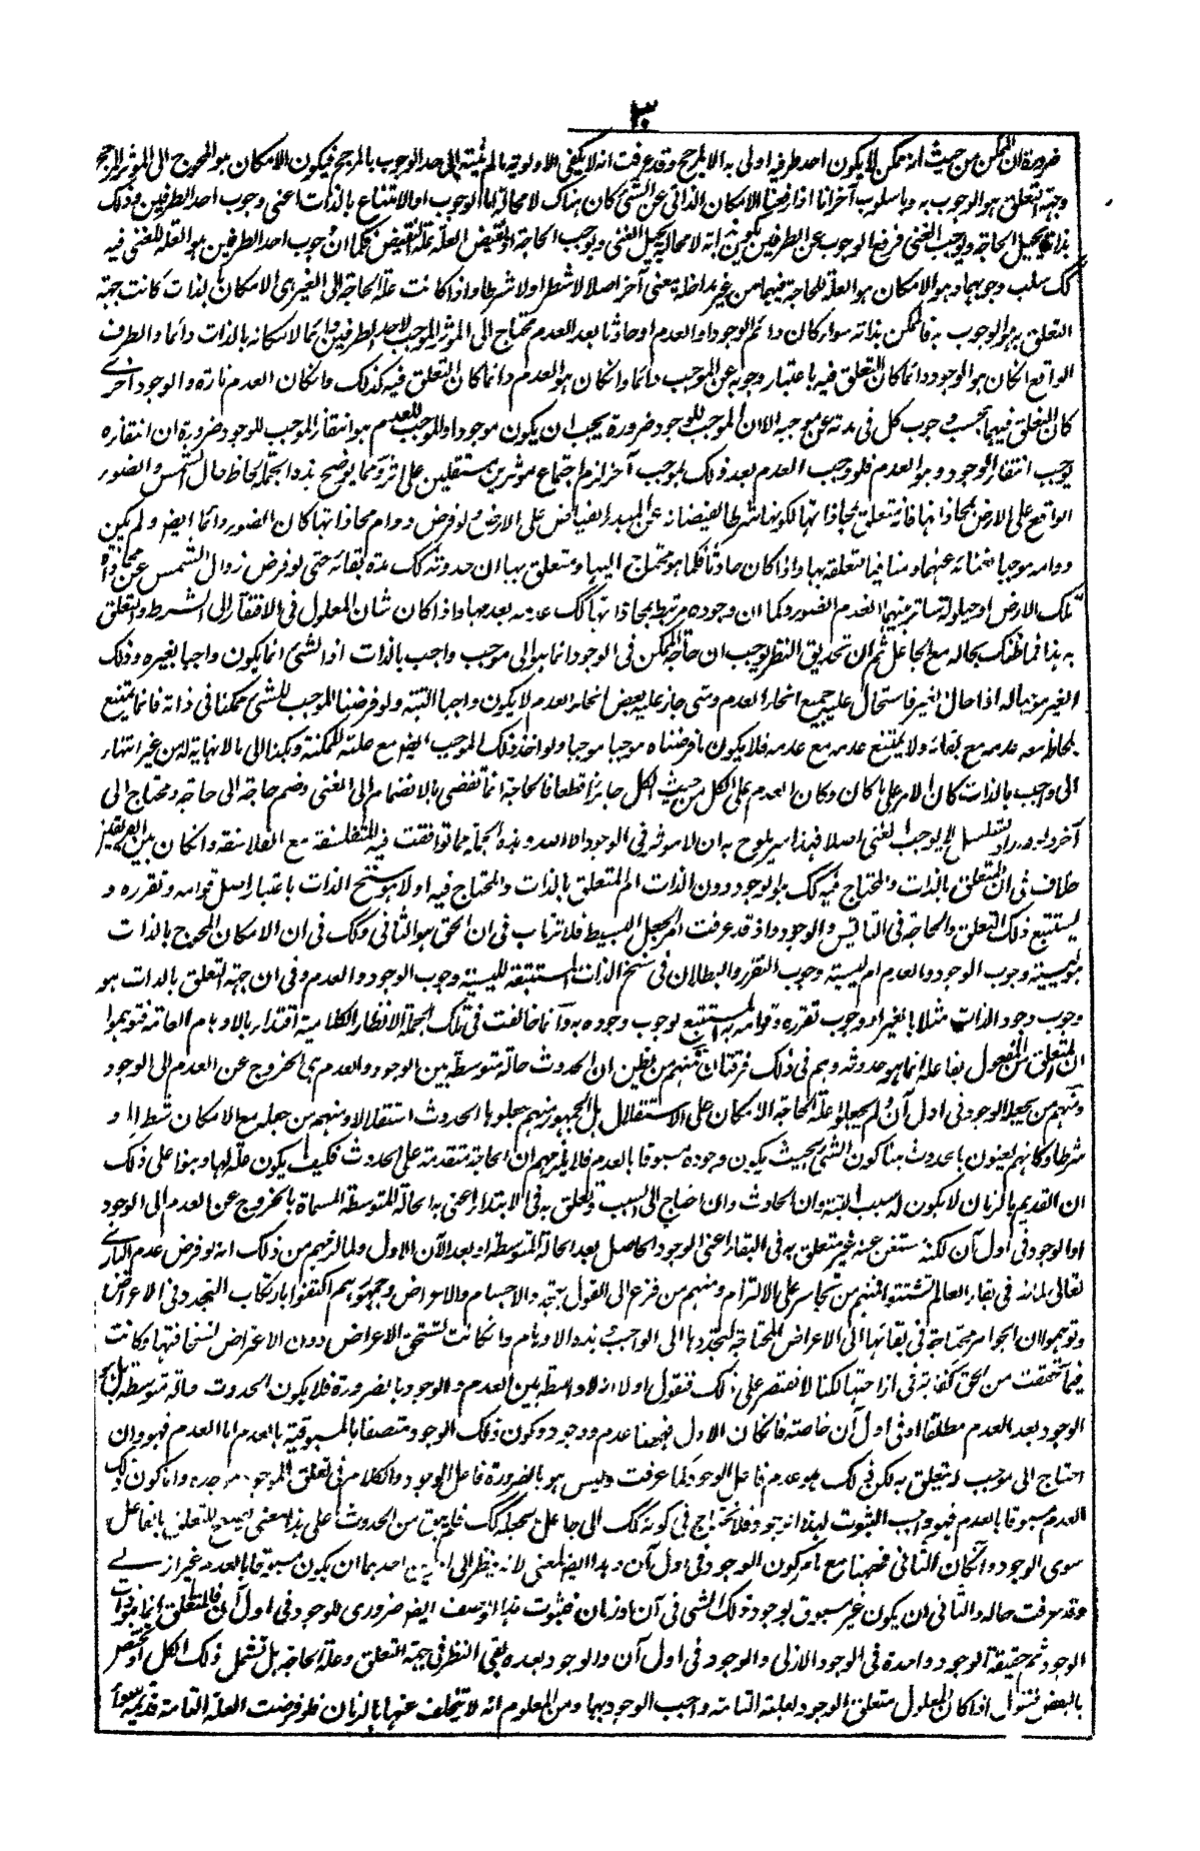 ٣٠
ضرورة ان الممكن من حيث انه ممكن لا يكون احد طرفيه اولى به الا بمرجح وقد عرفت انه لا يكفى الاولوية ما لم ينته الى حد الوجوب بالمرجح فيكون الامكان هو المحوج الى المؤثر المرجح
وجهة التعلق هو الوجوب به وباسلوب آخر انا اذا رفعنا الامكان الذاتى عن الشئ كان هناك لا محالة اما الوجوب او الامتناع بالذات اعنى وجوب احد الطرفين وذلك
بذاته يحيل الحاجة ويوجب الغنى فرفع الوجوب عن الطرفين يكون بذاته لا محالة يحيل الغنى ويوجب الحاجة اذ نقيض العلة علة النقيض فكما ان وجوب احد الطرفين هو العلة للغنى فيه
كك سلب وجوبهما وهو الامكان هو العلة للحاجة فيهما من غير مداخلة معنى آخر اصلا لا شطرا ولا شرطا واذا كانت علة الحاجة الى الغير هى الامكان بالذات كانت جهة
التعلق به هو الوجوب به فالممكن بذاته سواء كان دائم الوجود او العدم او حادثا بعد العدم محتاج الى المؤثر الموجب لاحد الطرفين دائما لامكانه بالذات دائما والطرف
الواقع انكان هو الوجود دائما كان التعلق فيه باعتبار وجوبه عن الموجب دائما وانكان هو العدم دائما كان التعلق فيه كذلك وانكان العدم تارة والوجود اخرى
كان التعلق فيهما بحسب وجوب كل فى مدته عن موجبه الا ان الموجب للوجود ضرورة يجب ان يكون موجودا والموجب للعدم هو انتفاء الموجب للوجود ضرورة ان انتفاءه
يوجب انتفاء الوجود وهو العدم فلو وجب العدم بعد ذلك بموجب آخر لزم اجتماع مؤثرين مستقلين على اثر ومما يوضح هذه الجملة لحاظ حال الشمس والضوء
الواقع على الارض بمحاذاتها فانه متعلق بمحاذاتها لكونها شرطا لفيضانه عن المبدء الفياض على الارض ولو فرض دوام محاذاتها كان الضوء دائما ايضا ولم يكن
دوامه موجبا لغنائه عنها ومنافيا لتعلقه بها واذا كان حادثا فكما هو محتاج اليها ومتعلق بها ان حدوثه كك مدة بقائه حتى لو فرض زوال الشمس عن محاذاة
تلك الارض او حيلولة ساتر عنهما انعدم الضوء وكما ان وجوده مرتبط بمحاذاتها كك عدمه بعدمها واذا كان شان المعلول فى الافتقار الى الشرط والتعلق
به هذا فما ظنك بحاله مع الجاعل ثم ان تحديق النظر يوجب ان حاجة الممكن فى الوجود انما هو الى موجب واجب بالذات اذ الشئ انما يكون واجبا بغيره وذلك
الغير موجبا له اذا احال الغير فاستحال عليه جميع انحاء العدم ومتى جاز عليه بعض انحاء العدم لا يكون واجبا البتة ولو فرضنا الموجب للشئ ممكنا فى ذاته فانما يمتنع
بلحاظ معه عدمه مع بقائه ولا يمتنع عدمه مع عدمه فلا يكون ما فرضناه موجبا موجبا ولو اخذ ذلك الموجب ايضا مع علته الممكنة وهكذا الى ما لا نهاية له من غير انتهاء
الى واجب بالذات كان الامر على ما كان وكان العدم على الكل من حيث الكل جائزا قطعا فالحاجة انما تفضى بالانضمام الى الغنى وضم حاجة الى حاجة ومحتاج الى
آخر ولو ورد التسلسل لا يوجب الغنى اصلا فهذا سر يلوح به ان لا مؤثر فى الوجود الا الله وهذه الجملة مما توافقت فيه المتفلسفة مع الفلاسفة وانكان بين الفريقين
خلاف فى ان المتعلق بالذات والمحتاج فيه كك هو الوجود دون الذات ام المتعلق بالذات والمحتاج فيه اولا هو سنخ الذات باعتبار اصل قوامه وتقرره و
يستتبع ذلك التعلق والحاجة فى التاليس والوجود واذ قد عرفت امر الجعل البسيط فلا ترتاب فى ان الحق هو الثانى وكك فى ان الامكان المحوج بالذات
هو ليسية وجوب الوجود والعدم ام ليسية وجوب التقرر والبطلان فى سنخ الذات المستتبعة لليسية وجوب الوجود والعدم وفى ان جهة التعلق بالذات هو
وجوب وجود الذات مثلا بالغير او وجوب تقرره وقوامه به المستتبع لوجوب وجوده به وآنما خالفت فى تلك الجملة الانظار الكلامية اقتداء بالاوهام العامة فتوهموا
ان المتعلق من المفعول بفاعله انما هو حدوثه وهم فى ذلك فرقتان منهم من يظن ان الحدوث حالة متوسطة بين الوجود والعدم هى الخروج عن العدم الى الوجود
ومنهم من يجعله الوجود فى اول آن ولم يجعلوا علة الحاجة الامكان على الاستقلال بل الجمهور منهم جعلوها الحدوث استقلالا ومنهم من جعله مع الامكان شطرا او
شرطا وكانهم يعنون بالحدوث هنا كون الشئ بحيث يكون وجوده مسبوقا بالعدم فلا يلزمهم ان الحاجة متقدمة على الحدوث فكيف يكون علة لها وبنوا على ذلك
ان القديم بالزمان لا يكون له سبب البتة وان الحادث وان احتاج الى السبب وتعلق به فى الابتداء اعنى به الحالة المتوسطة المسماة بالخروج عن العدم الى الوجود
او الوجود فى اول آن لكنه مستغن عنه غير متعلق به فى البقاء اعنى الوجود الحاصل بعد الحالة المتوسطة او بعد الآن الاول ولما لزمهم من ذلك انه لو فرض عدم البارى
تعالى لما اثر فى بقاء العالم تشتتوا فمنهم من تجاسر على الالتزام ومنهم من فزع الى القول بتجدد الاجسام والاعراض وجمهورهم اكتفوا بارتكاب التجدد فى الاعراض
وتوهموا ان الجواهر محتاجة فى بقائها الى الاعراض المحتاجة لتجددها الى الواجب وهذه الاوهام وانكانت تستحق الاعراض دون الاعتراض لسخافتها وكانت
فيما تحققت من الحق كفاية فى ازاحتها لكنا لا نقتصر على ذلك فنقول اولا اذ لا واسطة بين العدم والوجود بالضرورة فلا يكون الحدوث حالة متوسطة بل هو
الوجود بعد العدم مطلقا او فى اول آن خاصة فانكان الاول فههنا عدم ووجود وكون ذلك الوجود متصفا بالمسبوقية بالعدم اما العدم فهو وان
احتاج الى موجب له يتعلق به لكن ذلك هو عدم فاعل الوجود كما عرفت وليس هو بالضرورة فاعل الوجود والكلام فى تعلق الموجود بموجده واما كون ذلك
العدم مسبوقا بالعدم فهو واجب الثبوت لهذا الوجود فلا يحتاج فى كونه كك الى جاعل يجعله كك فلم يبق من الحدوث على هذا معنى يصلح للتعلق بالفاعل
سوى الوجود وانكان الثانى فههنا مع ما مر كون الوجود فى اول آن وهذا ايضا لمعنى لانه ينظر الى امرين احدهما ان يكون مسبوقا بالعدم غير ازلى
وقد عرفت حاله والثانى ان يكون غير مسبوق لوجود ذلك الشئ فى آن او زمان فثبوت هذا الوصف ايضا ضرورى للوجود فى اول آن فالمتعلق انما هو ذات
الوجود ثم حقيقة الوجود واحدة فى الوجود الازلى والوجود فى اول آن والوجود بعده بقى النظر فى جهة التعلق وعلة الحاجة هل تشمل ذلك الكل او تختص
بالبعض فنقول اذا كان المعلول متعلق الوجود لعلته التامة واجب الوجود بها ومن المعلوم انه لا يتخلف عنها بالزمان فلو فرضت العلة التامة قديمة سواء